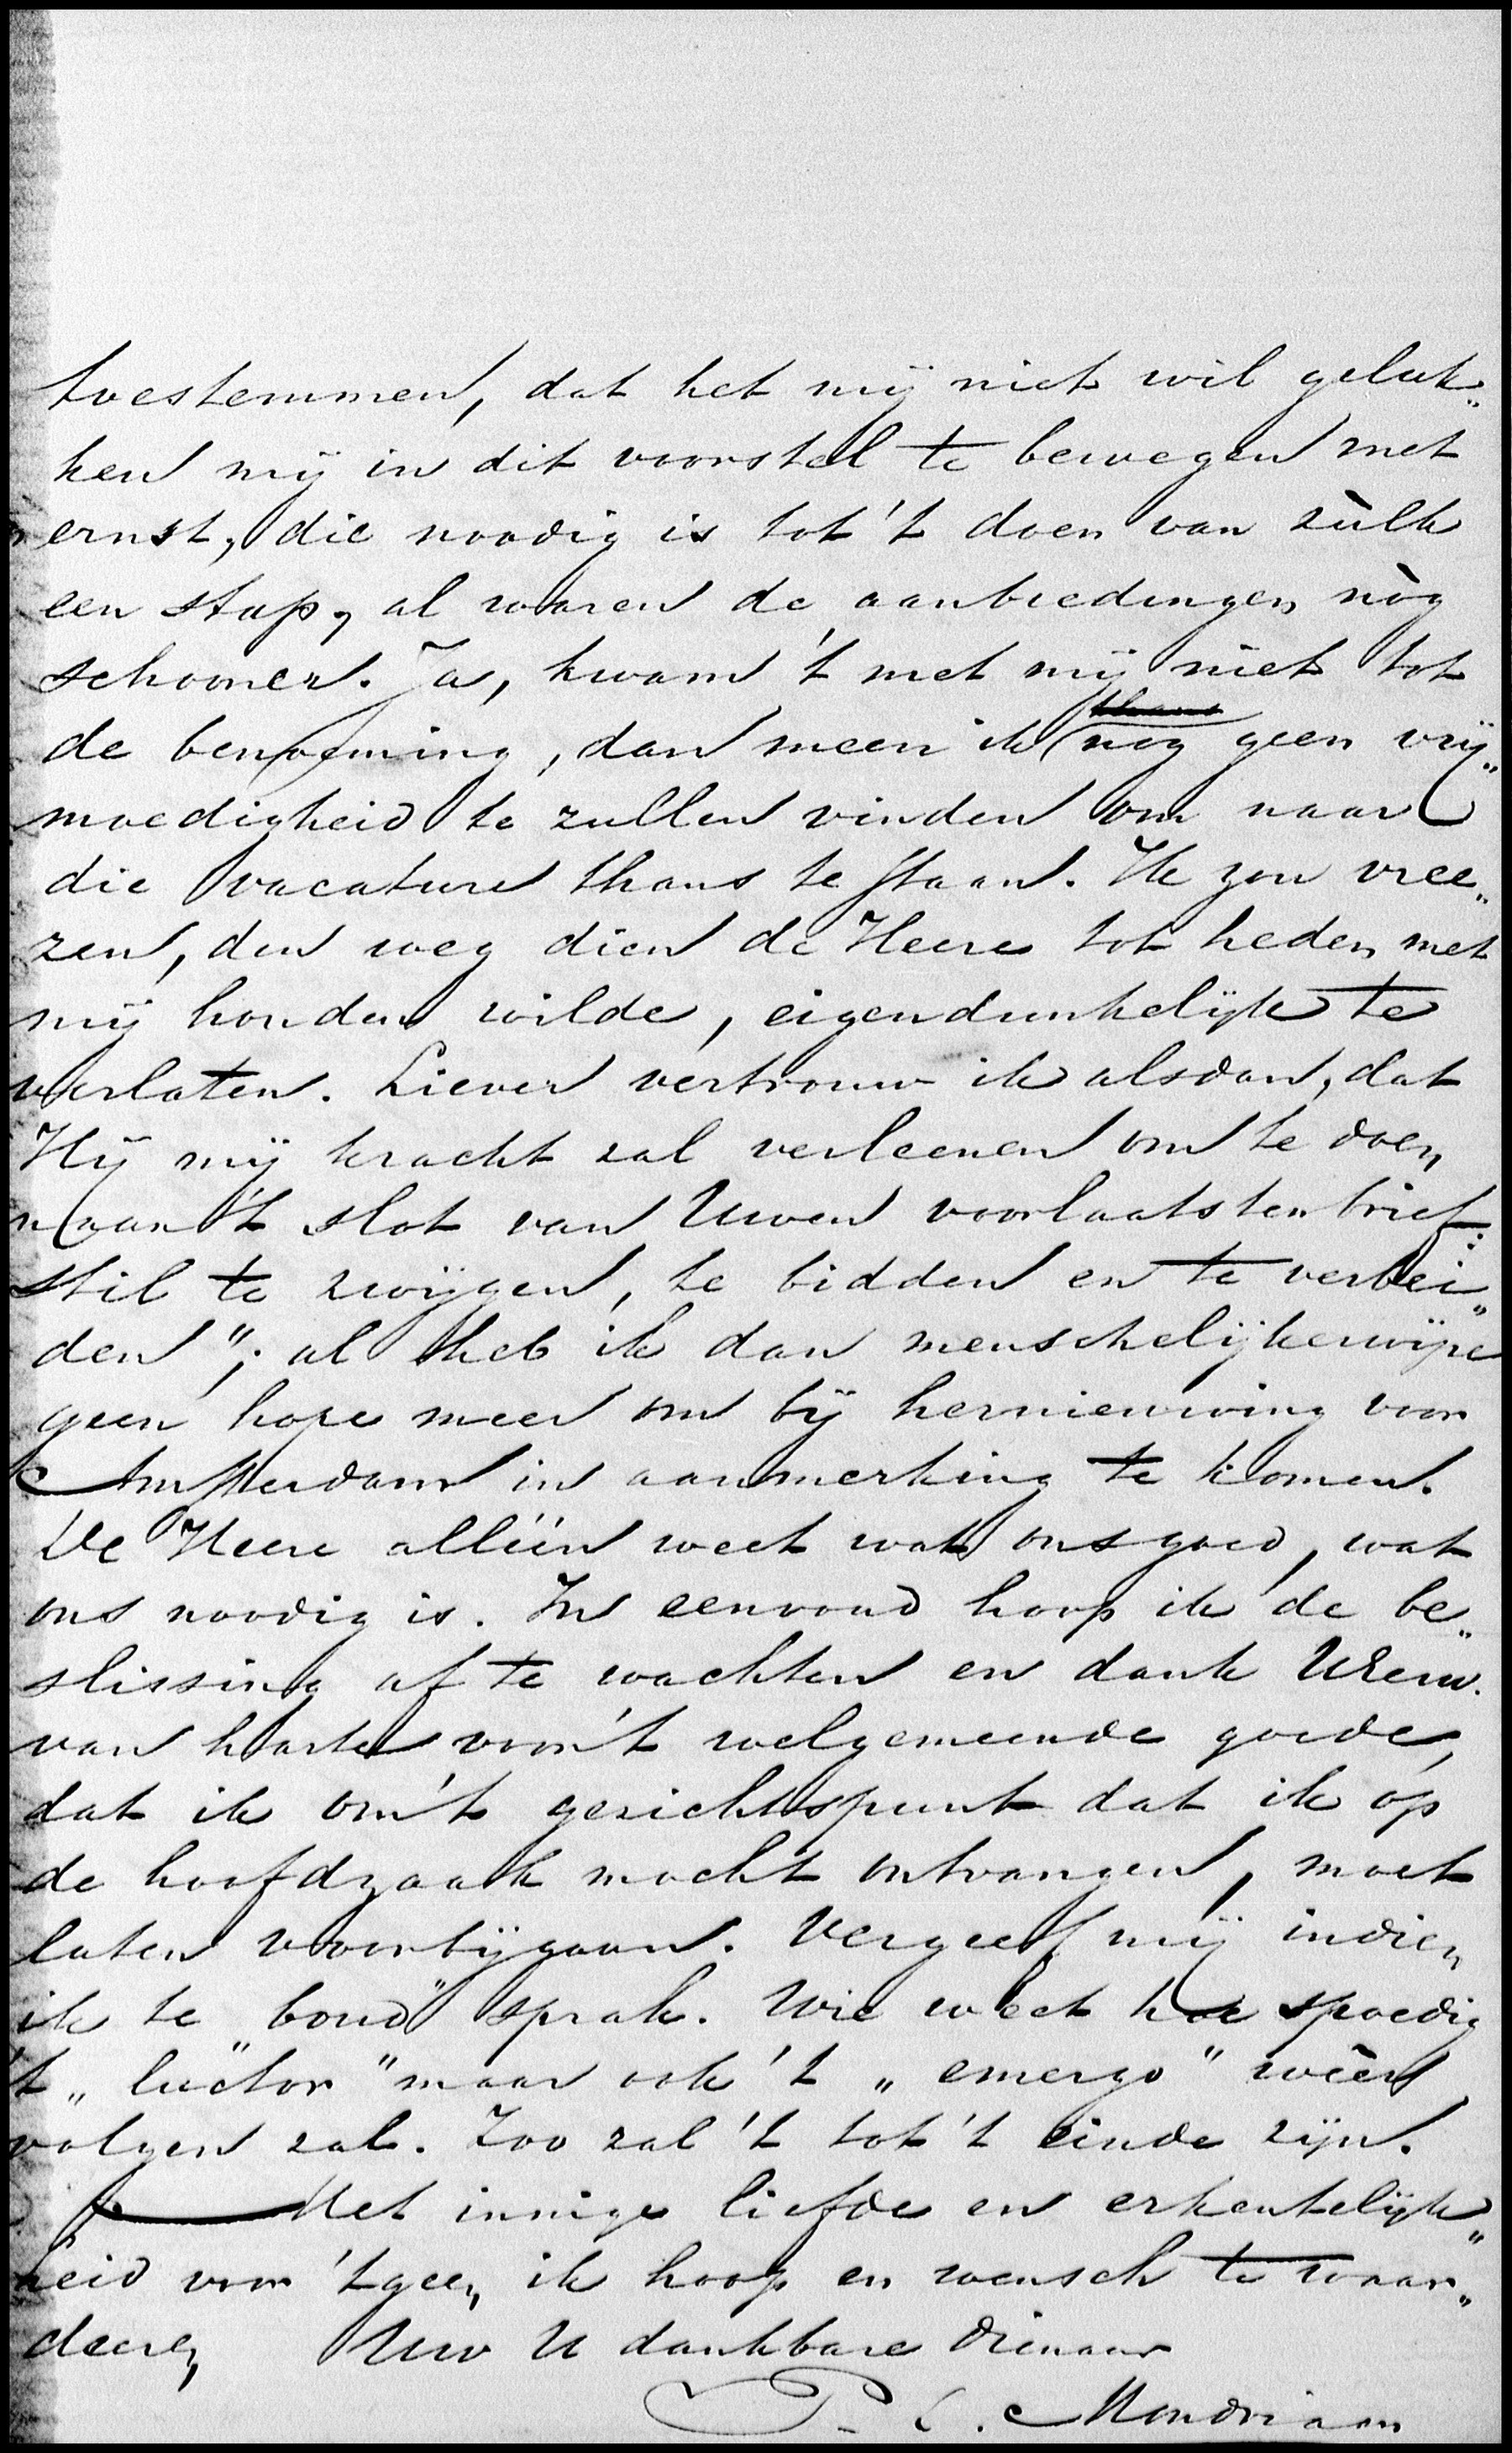 toestemmen, dat het mij niet wil geluk„
ken mij in dit voorstel te bewegen met
ernst, die noodig is tot 't doen van zùlk
een stap, al waren de aanbiedingen nòg
schooner. Ja, kwam 't met mij niet tot
de benoeming, dan meen ik nog geen vrij„
moedigheid te zullen vinden om naar
die vacature thans te staan. Ik zou vree„
zen, den weg dien de Heere tot heden met
mij houden wilde, eigendunkelijk te
verlaten. Liever vertrouw ik alsdan, dat
Hij mij kracht zal verleenen om te doen
aan 't slot van Uwen voorlaatsten brief:
stil te zwijgen, te bidden en te verbei„
den"; al heb ik dan menschelijkerwijze
geen hope meer om bij hernieuwing voor
Amsterdam in aanmerking te komen.
De Heere alléén weet wat ons goed, wat
ons noodig is. In eenvoud hoop ik de be„
slissing af te wachten en dank UEerw.
van harte voor 't welgemeende goede,
dat ik om 't gezichtspunt dat ik op
de hoofdzaak mocht ontvangen, moet
laten voorbijgaan. Vergeef mij indien
ik te „boud" sprak. Wie weet hoe spoedig
't „luctor" maar ook 't „emergo" wèer
volgen zal. Zoo zal 't tot 't einde zijn.
Met innige liefde en erkentelijk„
heid voor 'tgeen ik hoop en wensch te waar„
deeren, Uw U dankbare dienaar
P. C. Mondriaan